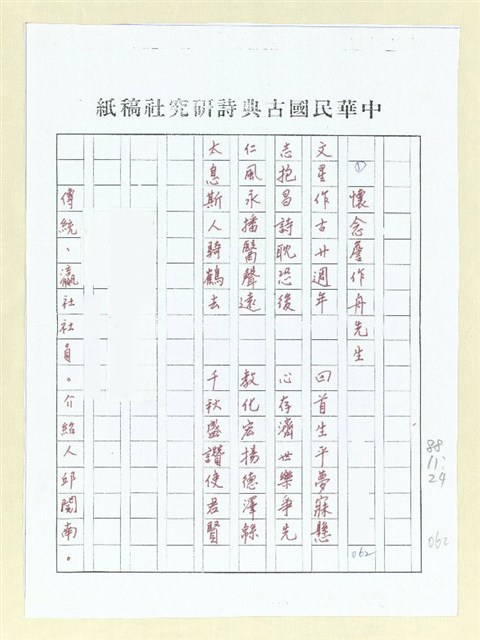 中華民國古典詩研究社稿紙
① 懷念詹作舟先生
062
文星作古廿週年 回首生平夢寐懸
志抱昌詩耽恐後 心存濟世樂爭先
仁風永播醫聲遠 教化宏揚德澤綿
太息斯人騎鶴去 千秋盛讚使君賢
傳統、瀛社社員。介紹人邱閱南。
88
11:
24
062